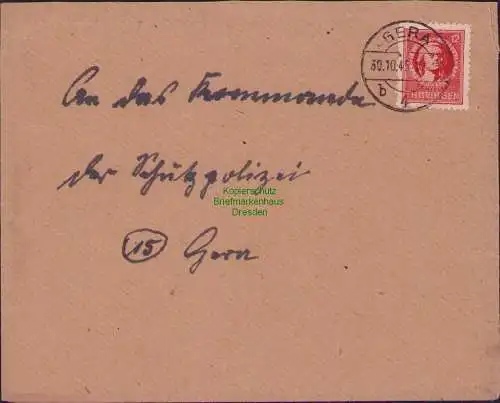 GERA
12
30.10.45
b
THÜRINGEN
An das Kommando
der Schutzpolizei
Kopierschutz
Briefmarkenhaus
Dresden
15 Gera